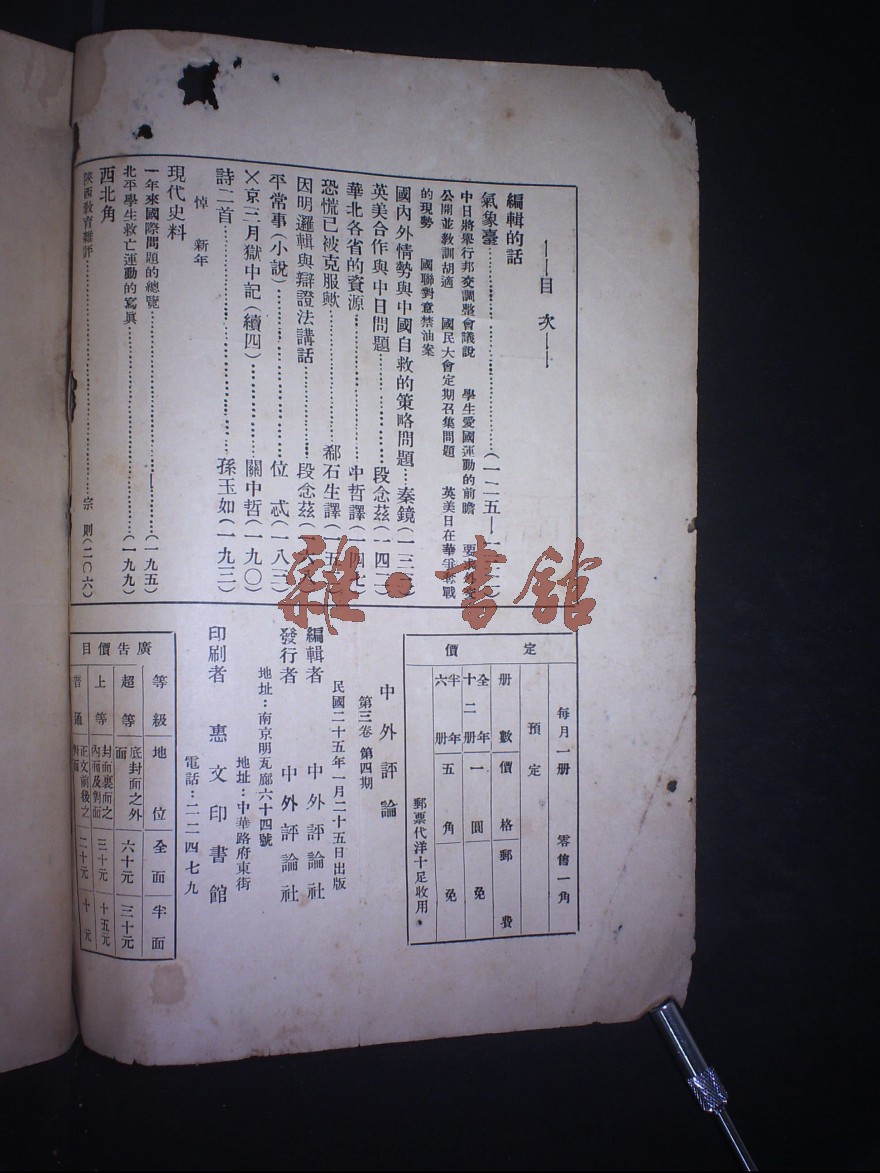 ——目 次——
編輯的話
氣象臺……………………………………(一二五—一三二)
中日將舉行邦交調整會議說 學生愛國運動的前瞻 要求外交
公開並教訓胡適 國民大會定期召集問題 英美日在華爭奪戰
的現勢 國聯對意禁油案
國內外情勢與中國自救的策略問題……秦鏡(一三三)
英美合作與中日問題………………段念茲(一四二)
華北各省的資源………………………中哲譯(一四七)
恐慌已被克服歟………………郗石生譯(一五
因明邏輯與辯證法講話………………段念茲(一六
平常事(小說)………………………位 忒(一八三)
×京三月獄中記(續四)………………關中哲(一九〇)
詩二首………………………………孫玉如(一九三)
悼 新年
現代史料
一年來國際問題的總覽………………………(一九五)
北平學生救亡運動的寫眞………………………(一九九)
西北角
陝西教育雜評……………………………宗 則(二〇六)
定價
每月一册 零售一角
預定
册數 價格 郵費
全年十二册 一圓 免
半年六册 五角 免
郵票代洋十足收用。
中外評論
第三卷 第四期
民國二十五年一月二十五日出版
編輯者 中外評論社
發行者 中外評論社
地址：南京明瓦廊六十四號
印刷者 惠文印書館
地址：中華路府東街
電話：二二四七九
廣告價目
等級 地位 全面 半面
超等 底封面之外面 六十元 三十元
上等 封面裏面之內面及對面 三十元 十五元
普通 正文前後之對面 二十元 十元
雜·書館